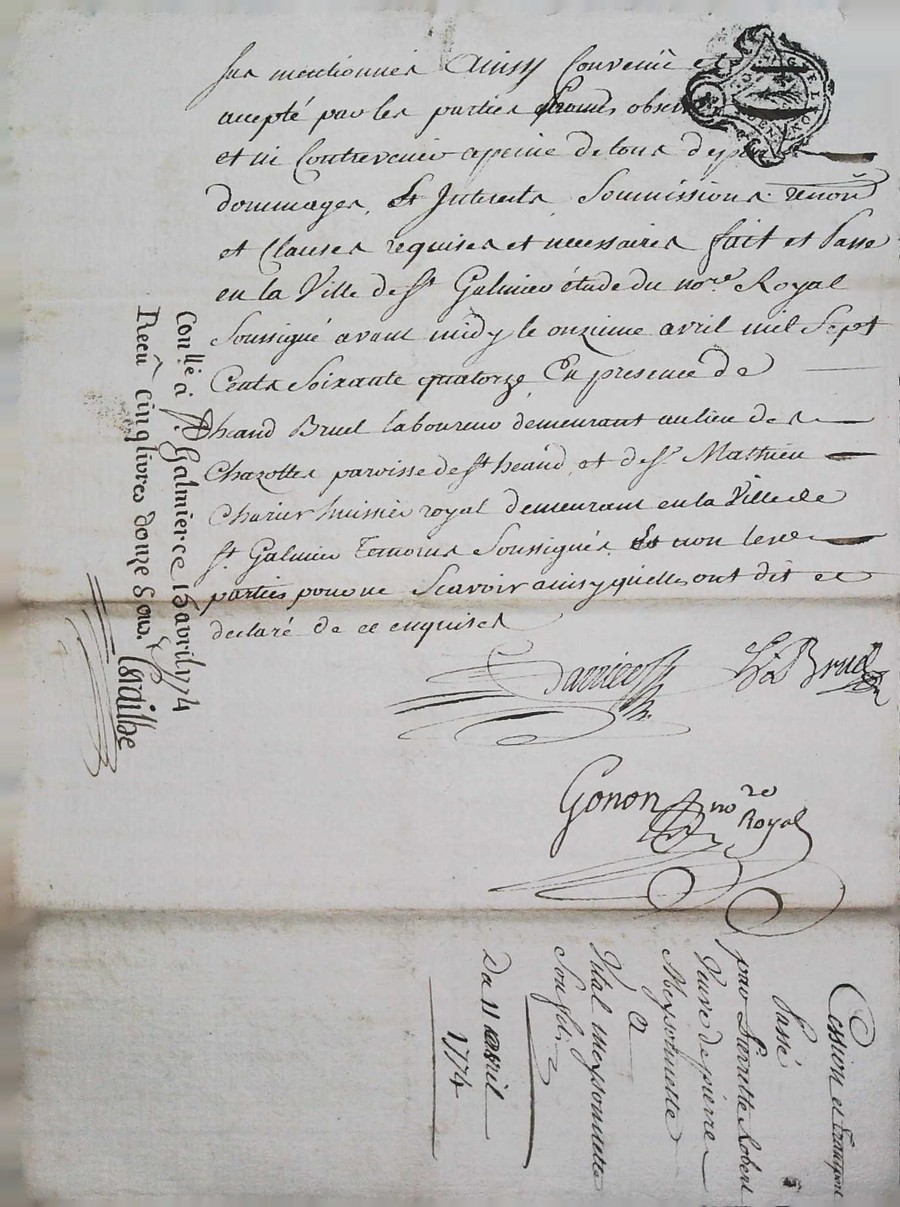 sus mentionnes Ainsy Convenü et
accepté par les parties promis obser
et ni Contrevenir a peine de tous depens
dommages, Et Interets Soumissions renon
et Clauses requises et necessaires fait et Passé
en la Ville de St Galmier étude du nore Royal
Soussigné avant midy le onzieme avril mil Sept
Cents Soixante quatorze En presence de
heand Bruel laboureur demeurant au lieu des
Chazottes parroisse de St heand, et de Sr Mathieu
Charier huissier royal demeurant en la Ville de
St Galmier Temoins Soussignés Et non lesd
parties pour ne Scavoir ainsy quelles ont dit et
declaré de ce enquises
Bruel
Gonon nore
Royal
Conllé à St Galmier ce 15 avril 1774
Recû cinq livres douze Sous.
Cession et transport
Passé
par Pierrette Robert
Veuve de pierre
Meyssonnette
a
Vital meyssonnette
Son fils
Du 11 avril
1774